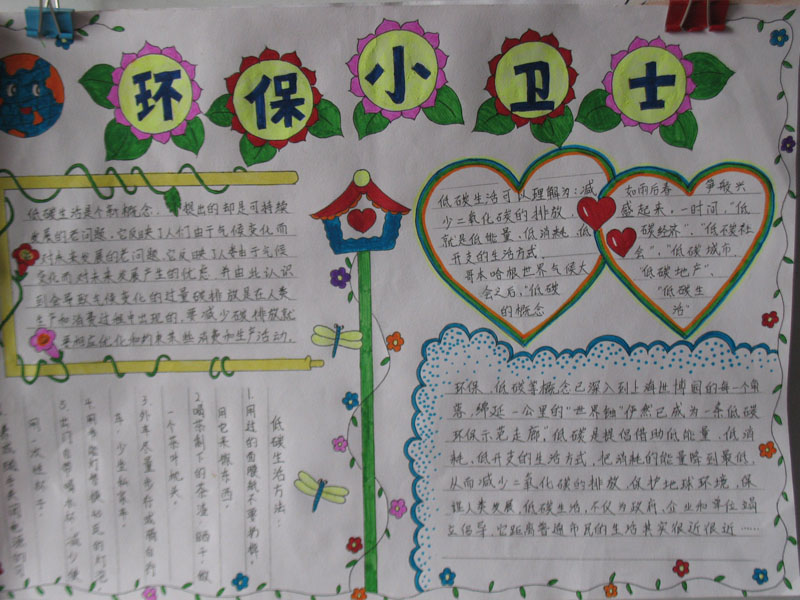 环保小卫士
低碳生活是个新概念,提出的却是可持续
发展的老问题,它反映了人们由于气候变化而
对未来发展的老问题,它反映了人类由于气候
变化而对未来发展产生的优思,并由此认识
到会导致气候变化的过量碳排放是在人类
生产和消费过程中出现的,要减少碳排放就
要相应优化和约束某些消费和生产活动.
低碳生活可以理解为:减
少二氧化碳的排放,
就是低能量、低消耗、低
开支的生活方式.
哥本哈根世界气候大
会之后,“低碳
的概念
如雨后春 争般兴
盛起来,一时间,“低
碳经济”、“低碳社
会”,“低碳城市、
“低碳地产”、
“低碳生
活”
低碳生活方法:
1.用过的面膜纸不要扔掉,
用它来擦东西.
2.喝茶剩下的茶渣,晒干,做
一个茶叶枕头.
3.外车尽量步行或骑自行
车,少坐私家车.
4.用节能灯替换站瓦的灯泡
5.出门自带喝水杯,减少使
用一次性杯子.
环保、低碳等概念已深入到上海世博园的每一个角
落,绵延一公里的“世界轴”俨然已成为一条低碳
环保示范走廊”.低碳是提倡借助低能量、低消
耗、低开支的生活方式,把消耗的能量降到最低,
从而减少二氧化碳的排放,保护地球环境,保
证人类发展,低碳生活,不仅为政府、企业和单位竭
立倡导,它距离普通市民的生活其实很近很近……